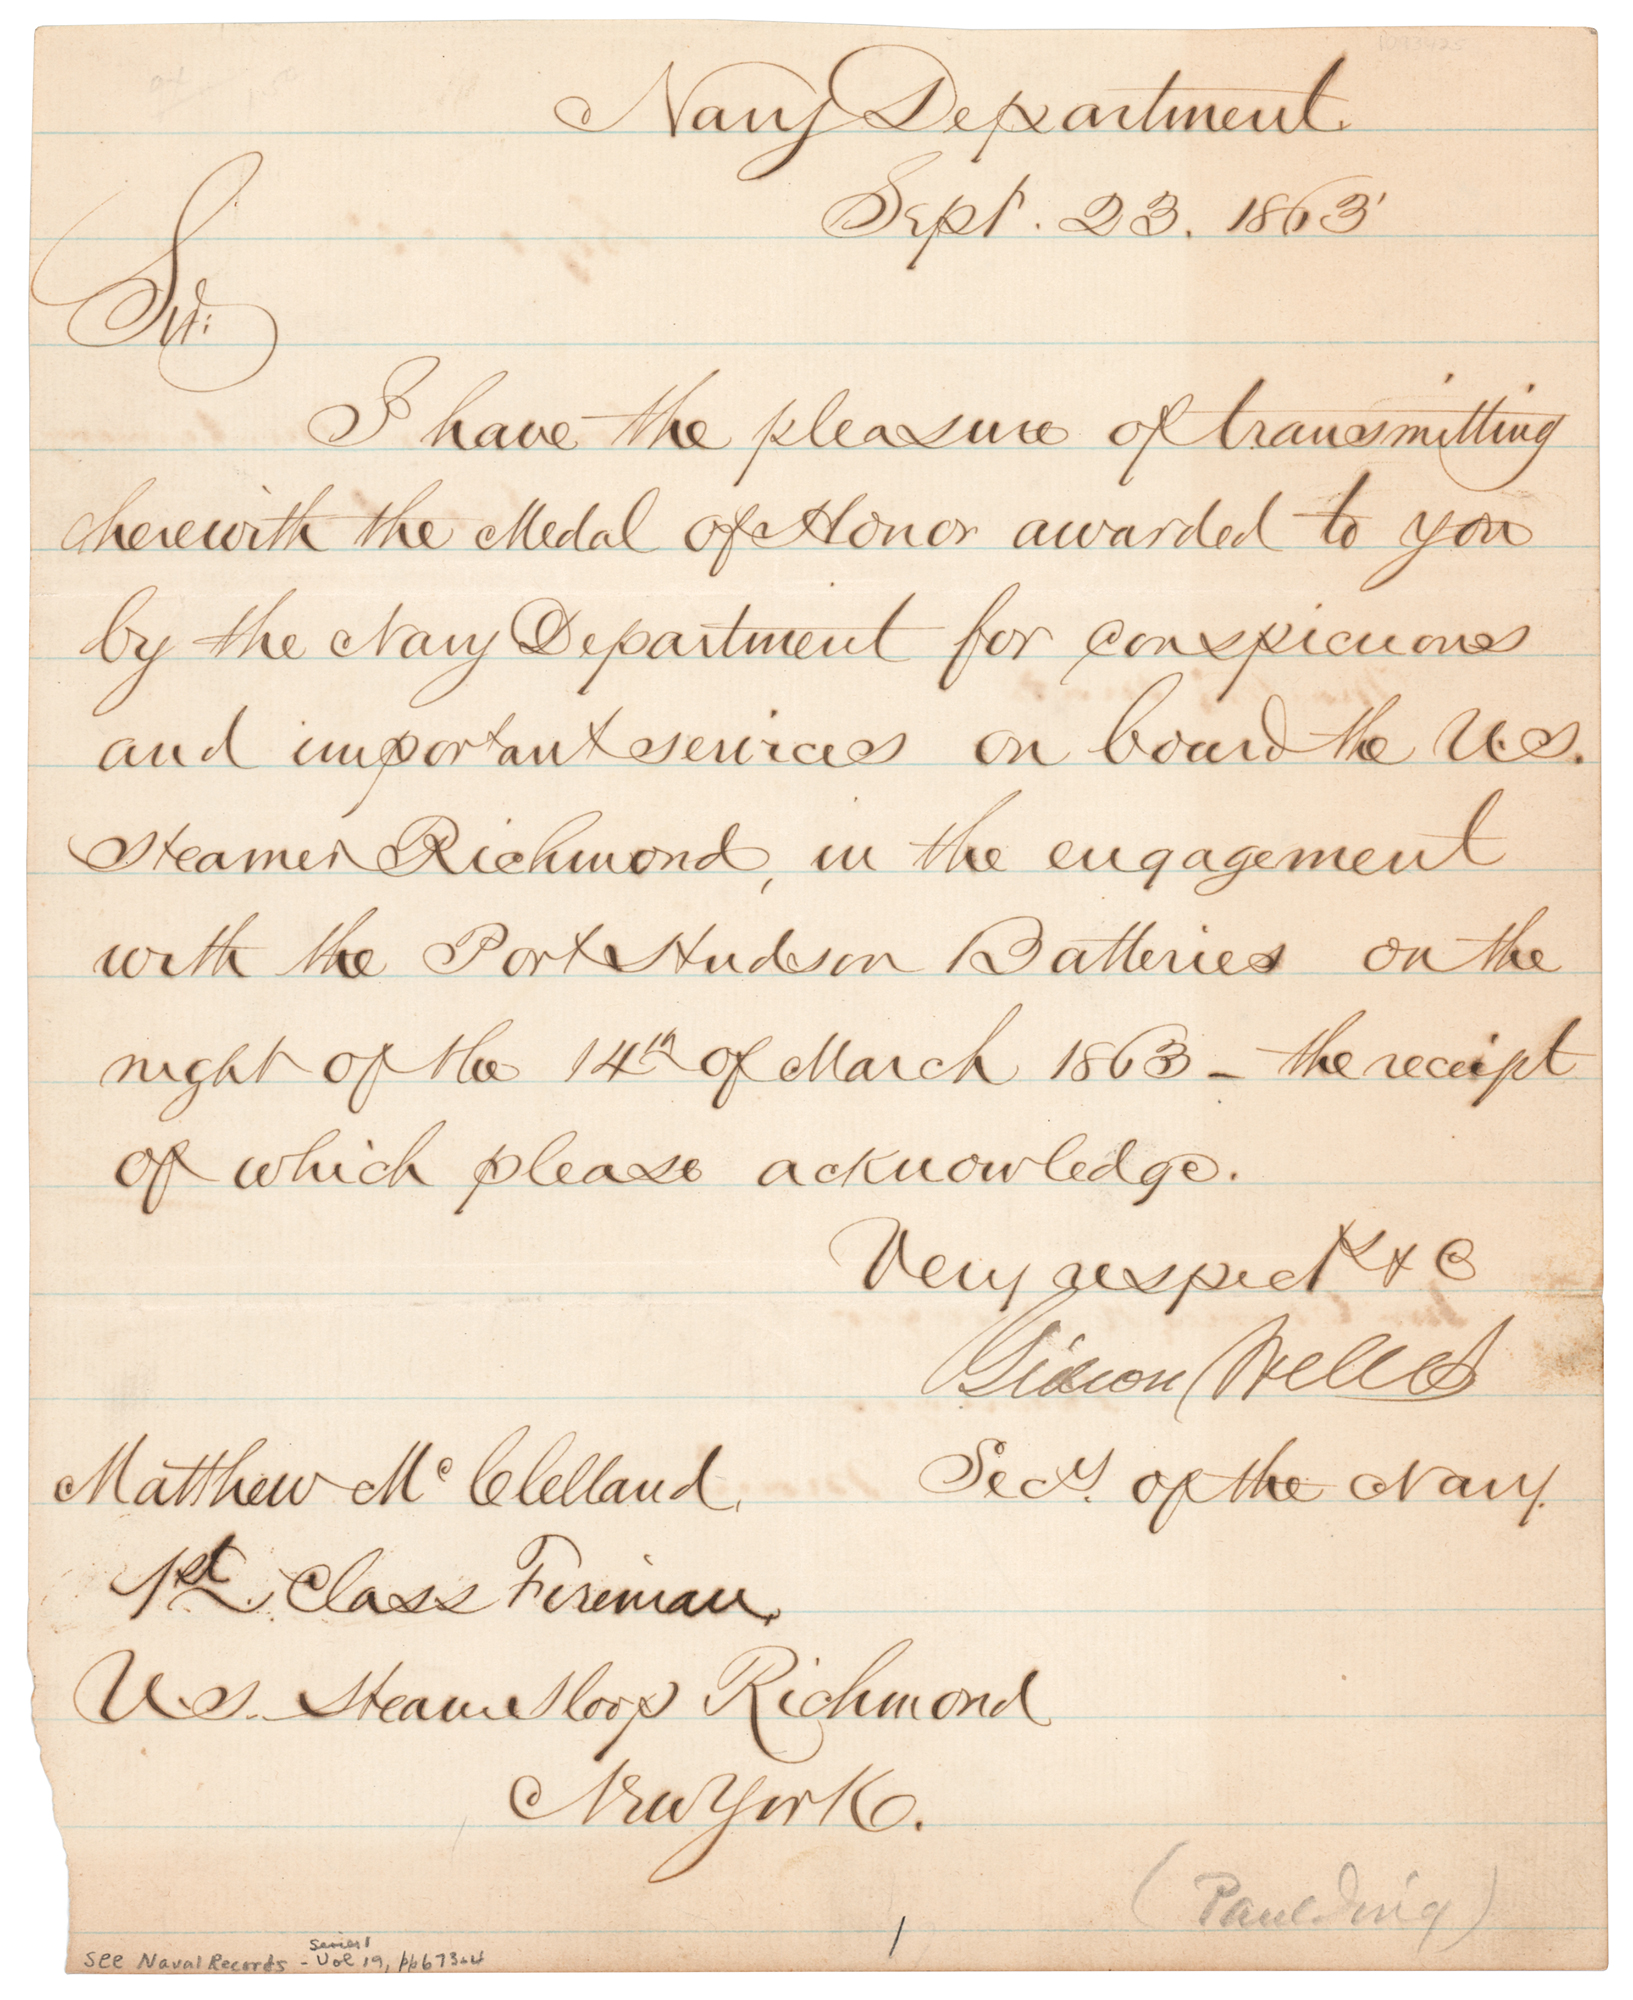 Navy Department.
Sept. 23. 1863
Sir:
I have the pleasure of transmitting
herewith the Medal of Honor awarded to you
by the Navy Department for conspicuous
and important services on board the U.S.
Steamer Richmond, in the engagement
with the Port Hudson Batteries on the
night of the 14th of March 1863 - the receipt
of which please acknowledge.
Very respect &c
Gideon Welles
Secy. of the Navy.
Matthew McClelland,
1st. Class Fireman,
U.S. Steam Sloop Richmond
New York.
(Paulding)
1
Series 1
See Naval Records - Vol 19, pp 673